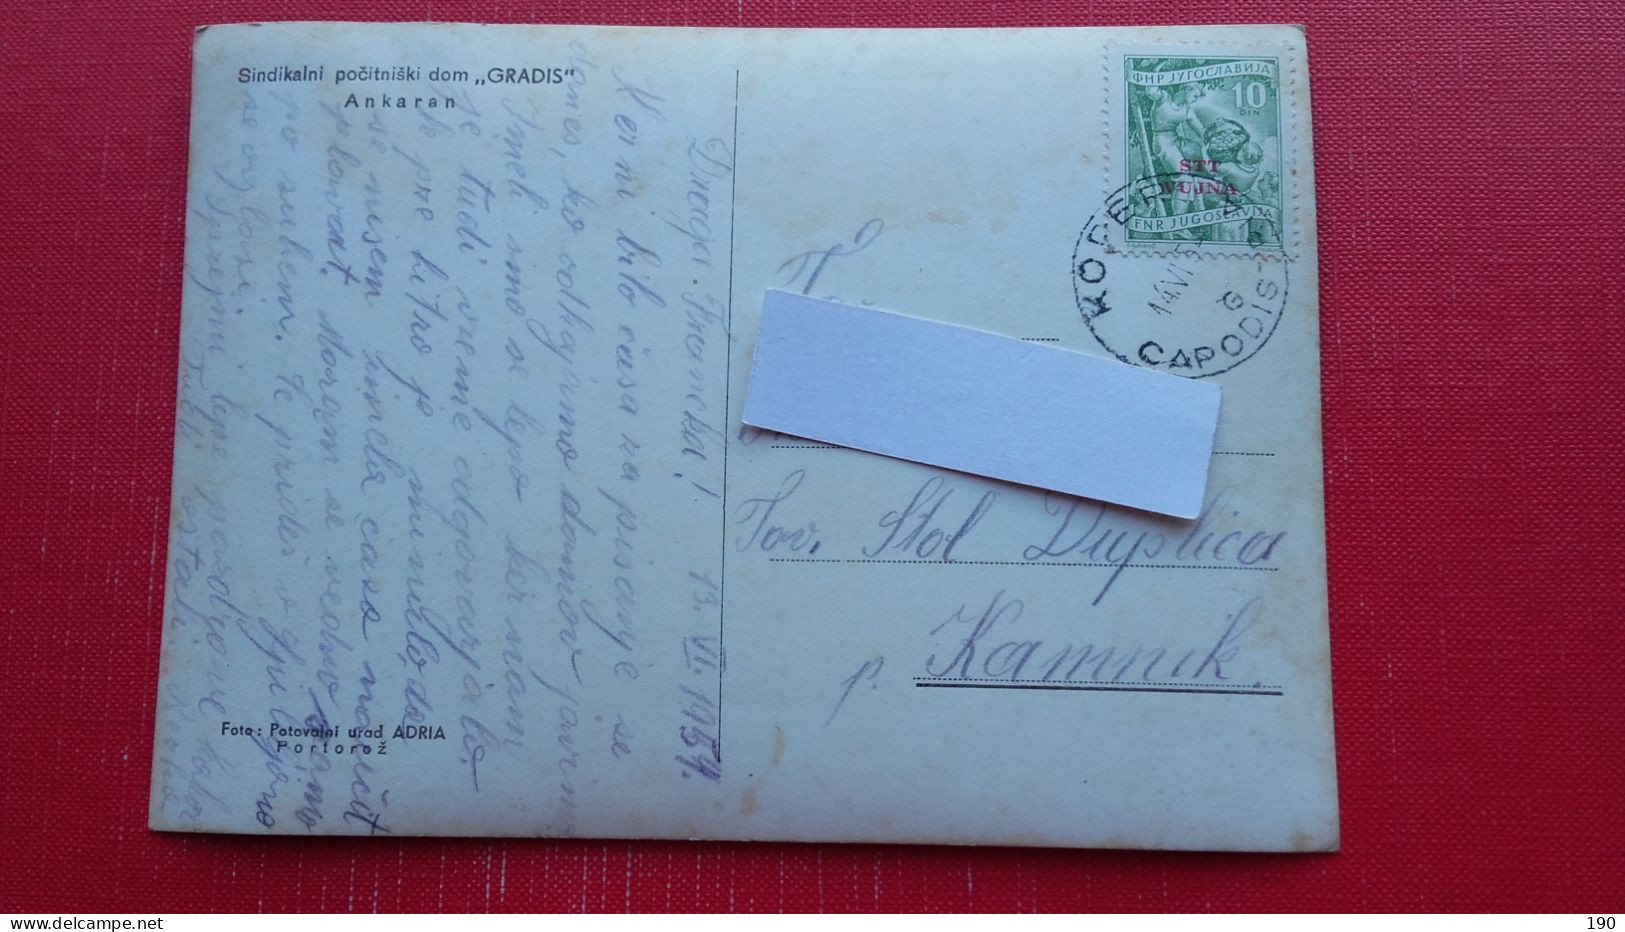 Sindikalni počitniški dom „GRADIS"
Ankaran
Draga Francka! 13. VI. 1954.
Ker ni bilo časa za pisanje se
danes, ko odhajamo domov javimo.
Imeli smo se lepo ker nam
je tudi vreme odgovarjalo.
pre hitro je minilo, da
se nisem imela časa naučit
plavat. Moram se vedno samo
po suhem. Če prideš v Ljubljano
se oglasi.
Sprejmi lepe pozdrave kakor
Tudi ostali
Foto: Potovalni urad ADRIA
Portorož
ФНР ЈУГОСЛАВИЈА
10
DIN
STT
VUJNA
FNR JUGOSLAVIJA
KOPER
14.VI.54
G
CAPODIS
Tov. Stol Duplica
p. Kamnik.
190